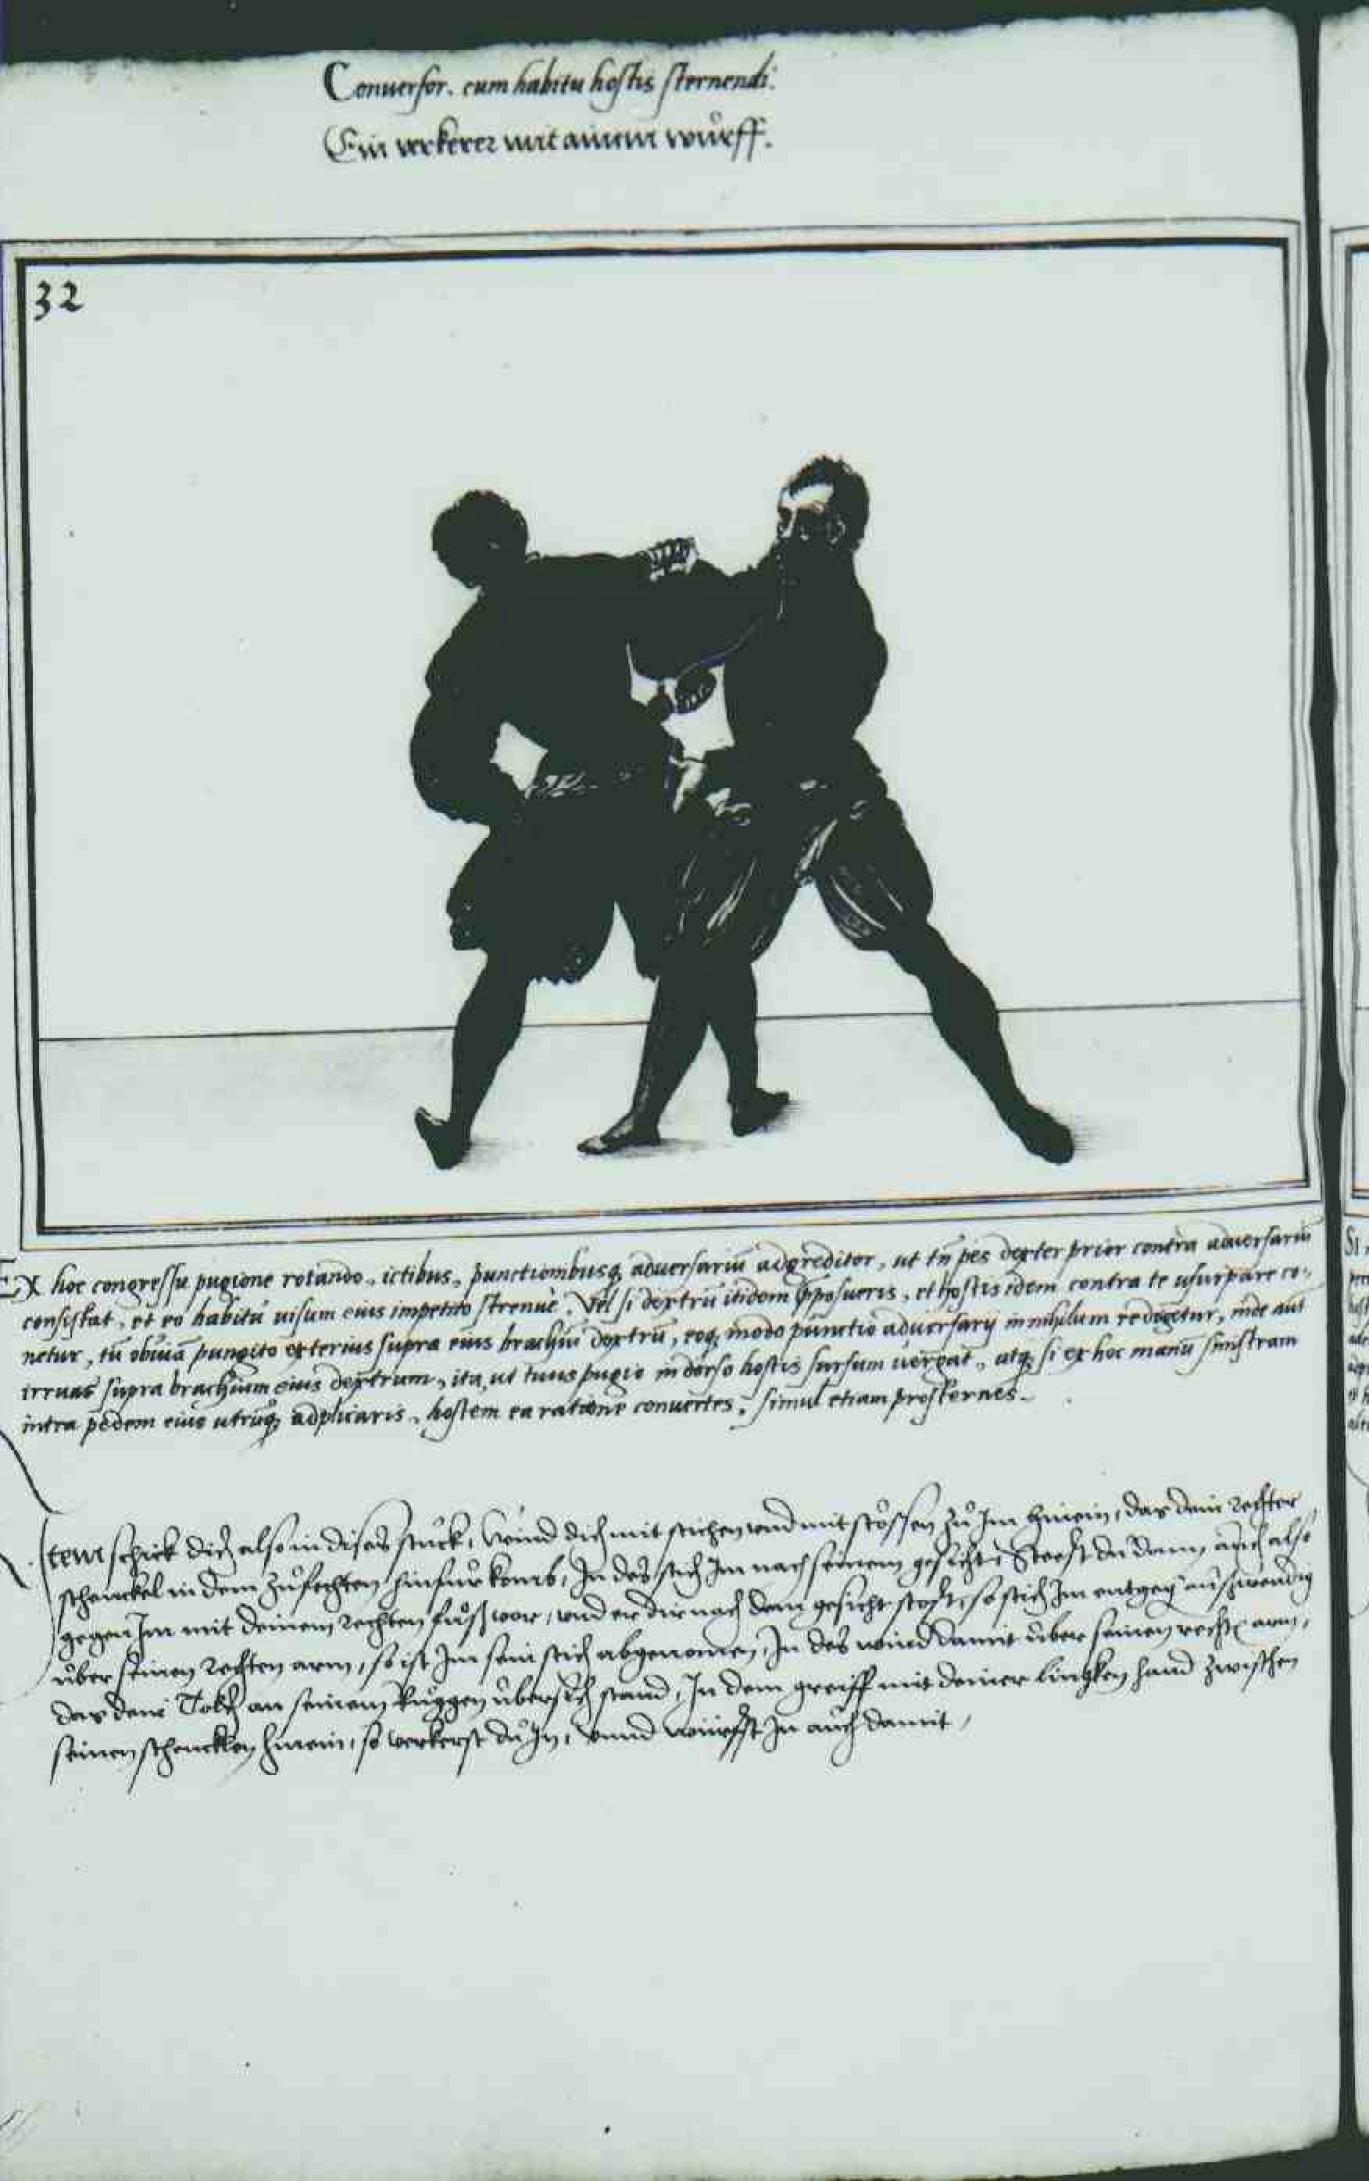 Conversor. cum habitu hostis sternendi.
Ein verkerer mit ainem wůrff.
32
Ex hoc congressu pugione rotando, ictibus, punctionibusq; adversariũ adgreditor, ut tñ pes dexter prior contra adversariũ
consistat, et eo habitu uisum eius impetito strenuè. Vel si dextrũ itidem opposueris, et hostis idem contra te usurpare co-
netur, tũ obuiã pungito exterius supra eius brachiũ dextrũ, eoq; modo punctio adversarij in nihilum redigetur, inde aut
irruas supra brachium eius dextrum, ita, ut tuus pugio in dorso hostis sursum uergat, atq; si ex hoc manũ sinistram
intra pedem eius utrũq; adplicaris, hostem ea ratione convertes, simul etiam prosternes.
Item schick dich also in dises stuck, wind dich mit stichen vnd mit stössen zů Im hinein, das dein rechter
schenckel in dem zůfechten hinfür komb, In des stich Im nach seinem gesicht, Steest du dann auch also
gegen Im mit deinem rechten fůß vor, vnd er dir nach dem gesicht stost, so stich Im entgegen außwendig
über seinen rechten arm, so ist Im sein stich abgenomen, In des wind damit über seinen rechtē arm,
das dein Tolch an seinem Ruggen übersich stand, In dem greiff mit deiner lingken hand zwischen
seinen schencklen hinein, so verkerst du In, vnnd würffst In auch damit,